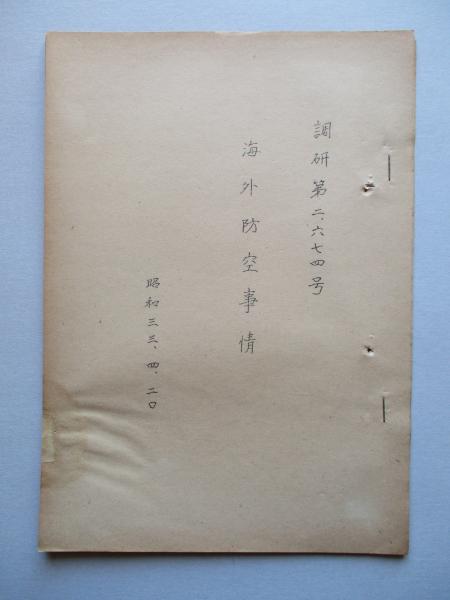 調研第二、六七四号
海外防空事情
昭和三三、四、二〇